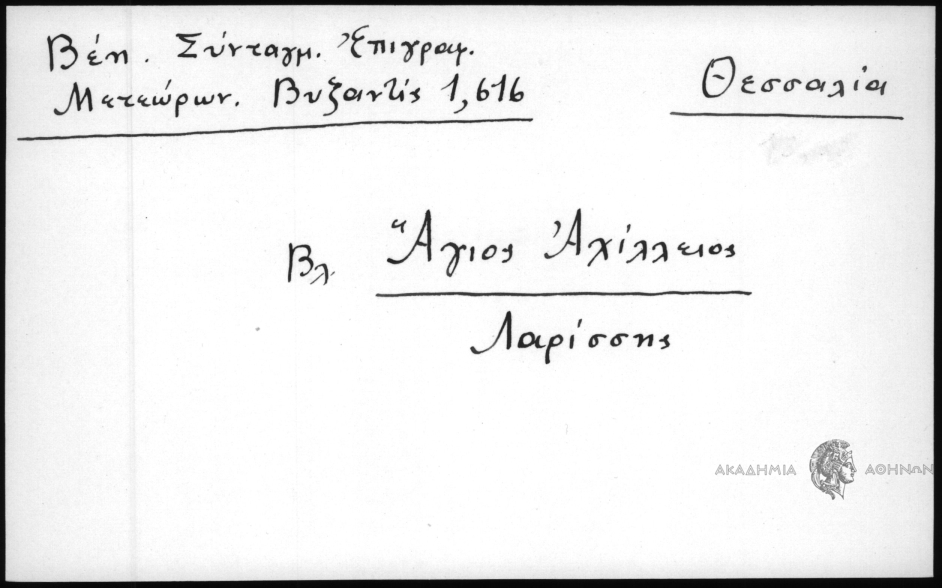 Βέη. Σύνταγμ. Ἐπιγραφ.
Μετεώρων. Βυζαντίς 1,616
Θεσσαλία
Βλ. Ἅγιος Ἀχίλλειος
Λαρίσσης
ΑΚΑΔΗΜΙΑ ΑΘΗΝΩΝ